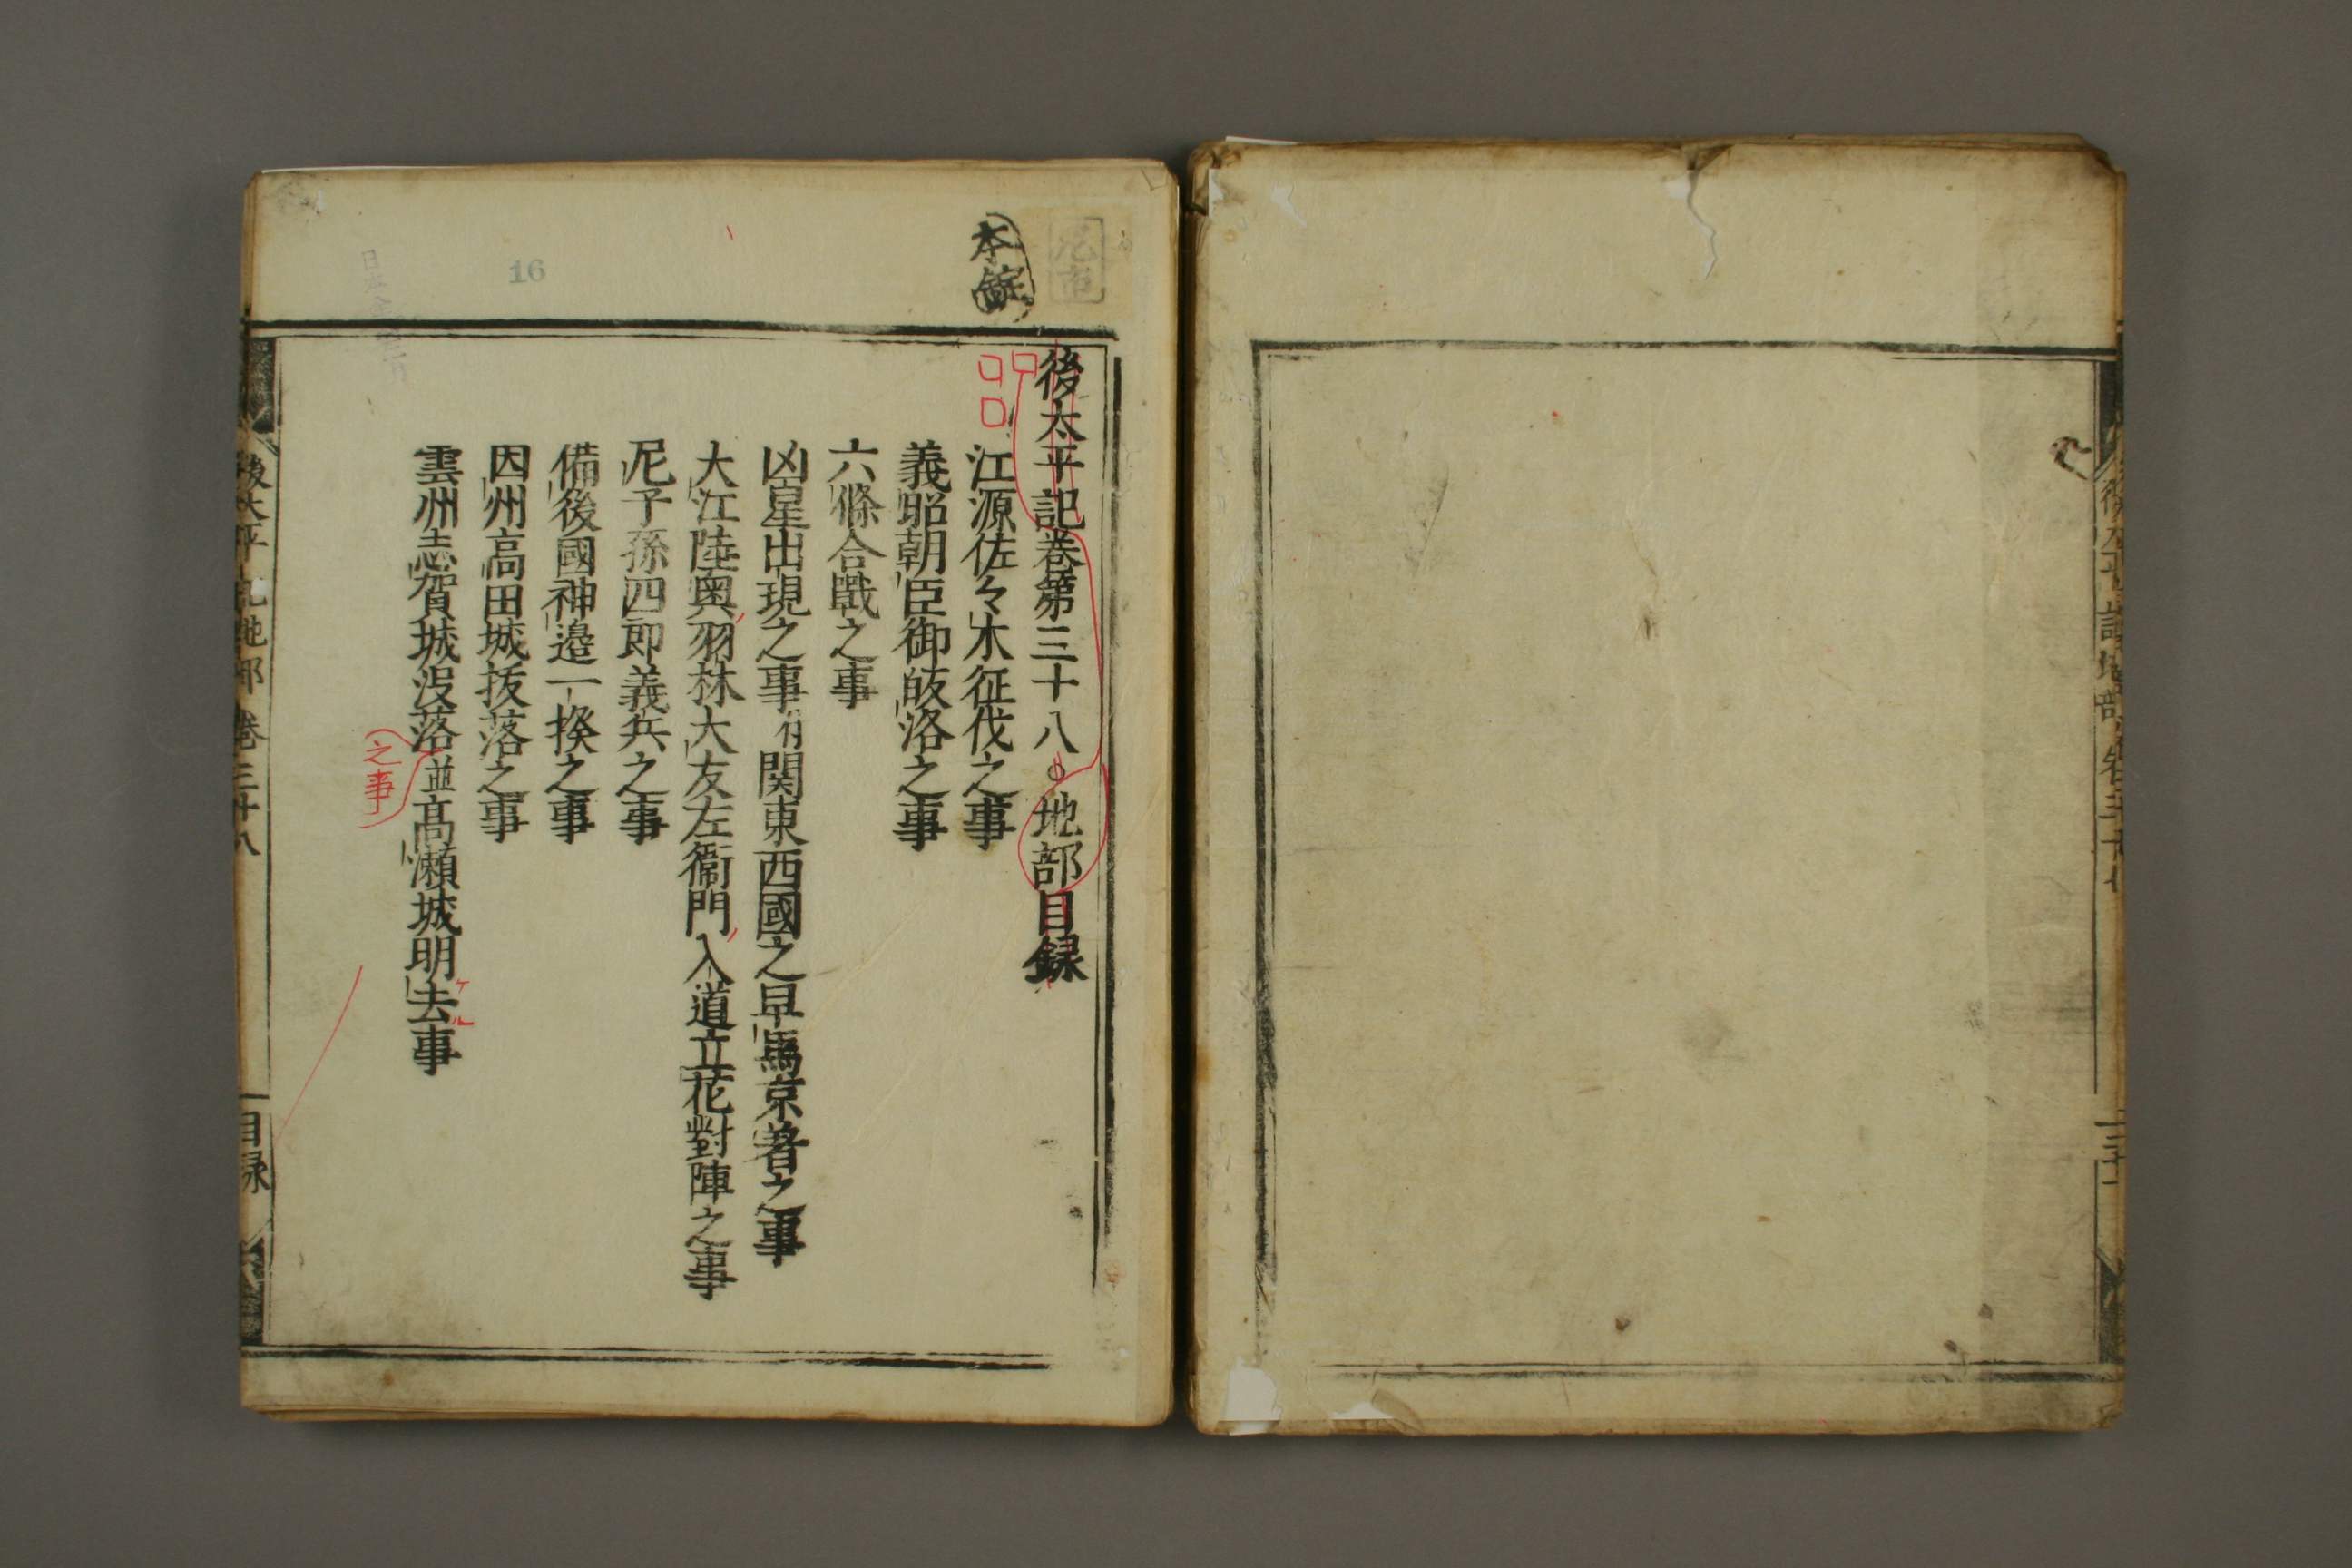 後太平記卷第三十八 地部目録
江源佐々木征伐之事
義昭朝臣御皈洛之事
六條合戰之事
凶星出現之事付関東西國之早馬京着之事
大江陸奥羽林大友左衞門入道立花對陣之事
尼子孫四郎義兵之事
備後國神邉一揆之事
因州高田城抜落之事
雲州志賀城没落並髙瀬城明去事
之事
ケル
本
16
後太平記地部 卷三十八
目録